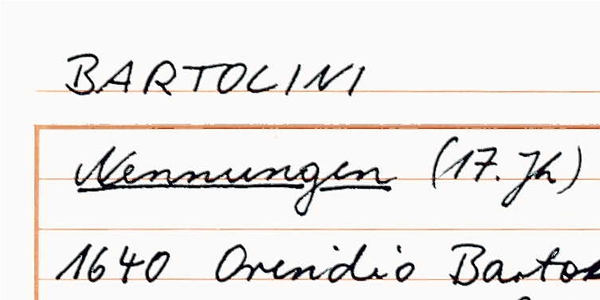 BARTOLINI
Nennungen (17. Jh)
1640 Orendio Barto